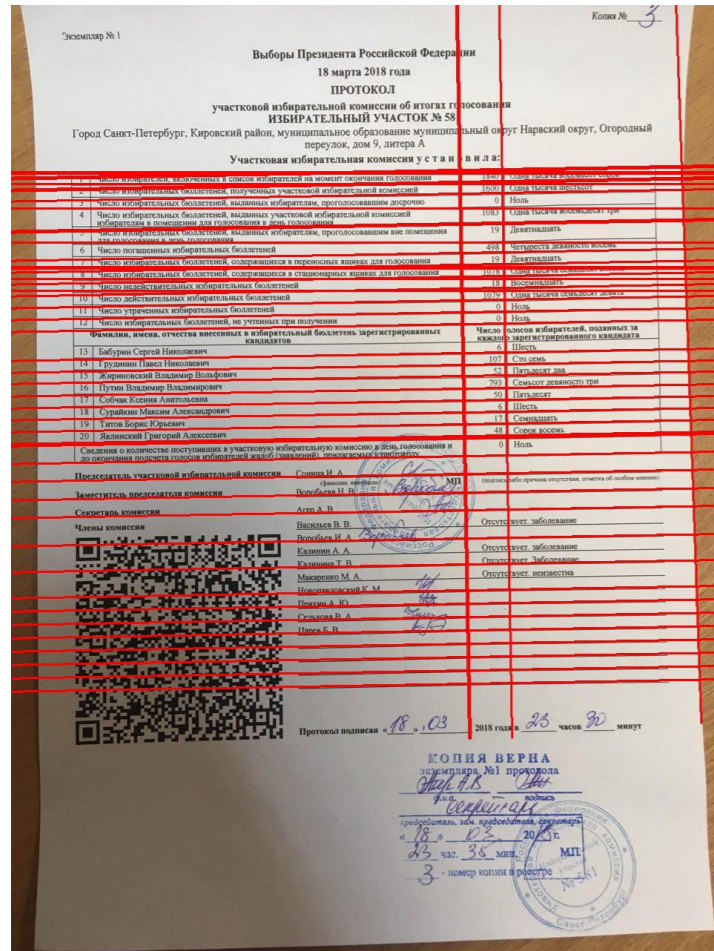 Экземпляр № 1
Копия № 3
Выборы Президента Российской Федерации
18 марта 2018 года
ПРОТОКОЛ
участковой избирательной комиссии об итогах голосования
ИЗБИРАТЕЛЬНЫЙ УЧАСТОК № 581
Город Санкт-Петербург, Кировский район, муниципальное образование муниципальный округ Нарвский округ, Огородный
переулок, дом 9, литера А
Участковая избирательная комиссия у с т а н о в и л а:
1 Число избирателей, включенных в список избирателей на момент окончания голосования 1840 Одна тысяча восемьсот сорок
2 Число избирательных бюллетеней, полученных участковой избирательной комиссией 1600 Одна тысяча шестьсот
3 Число избирательных бюллетеней, выданных избирателям, проголосовавшим досрочно 0 Ноль
4 Число избирательных бюллетеней, выданных участковой избирательной комиссией 1083 Одна тысяча восемьдесят три
избирателям в помещении для голосования в день голосования
5 Число избирательных бюллетеней, выданных избирателям, проголосовавшим вне помещения 19 Девятнадцать
для голосования в день голосования
6 Число погашенных избирательных бюллетеней 498 Четыреста девяносто восемь
7 Число избирательных бюллетеней, содержащихся в переносных ящиках для голосования 19 Девятнадцать
8 Число избирательных бюллетеней, содержащихся в стационарных ящиках для голосования 1078 Одна тысяча семьдесят восемь
9 Число недействительных избирательных бюллетеней 18 Восемнадцать
10 Число действительных избирательных бюллетеней 1079 Одна тысяча семьдесят девять
11 Число утраченных избирательных бюллетеней 0 Ноль
12 Число избирательных бюллетеней, не учтенных при получении 0 Ноль
Фамилии, имена, отчества внесенных в избирательный бюллетень зарегистрированных кандидатов
Число голосов избирателей, поданных за каждого зарегистрированного кандидата
13 Бабурин Сергей Николаевич 6 Шесть
14 Грудинин Павел Николаевич 107 Сто семь
15 Жириновский Владимир Вольфович 52 Пятьдесят два
16 Путин Владимир Владимирович 793 Семьсот девяносто три
17 Собчак Ксения Анатольевна 50 Пятьдесят
18 Сурайкин Максим Александрович 6 Шесть
19 Титов Борис Юрьевич 17 Семнадцать
20 Явлинский Григорий Алексеевич 48 Сорок восемь
Сведения о количестве поступивших в участковую избирательную комиссию в день голосования и 0 Ноль
до окончания подсчета голосов избирателей жалоб (заявлений), прилагаемых к протоколу
Председатель участковой избирательной комиссии Сонина И. А.
(фамилия, инициалы) МП (подпись либо причина отсутствия, отметка об особом мнении)
Заместитель председателя комиссии Воробьева Н. В.
Секретарь комиссии Агер А. В.
Члены комиссии Васильев В. В. Отсутствует. заболевание
Воробьев И. А.
Калинин А. А. Отсутствует. заболевание
Калинина Т. В. Отсутствует. Заболевание
Макаренко М. А. Отсутствует. неизвестна
Новопавловский К. М.
Пряхин А. Ю.
Селькова В. А.
Царев Е. В.
Протокол подписан « 18 » 03 2018 года в 23 часов 30 минут
КОПИЯ ВЕРНА
экземпляра №1 протокола
Агер А.В
ф.и.о. подпись
Секретарь
председатель, зам. председателя, секретарь
« 18 » 03 2018 г.
23 час. 35 мин. МП
3 - номер копии в реестре
№ 581
Санкт-Петербург